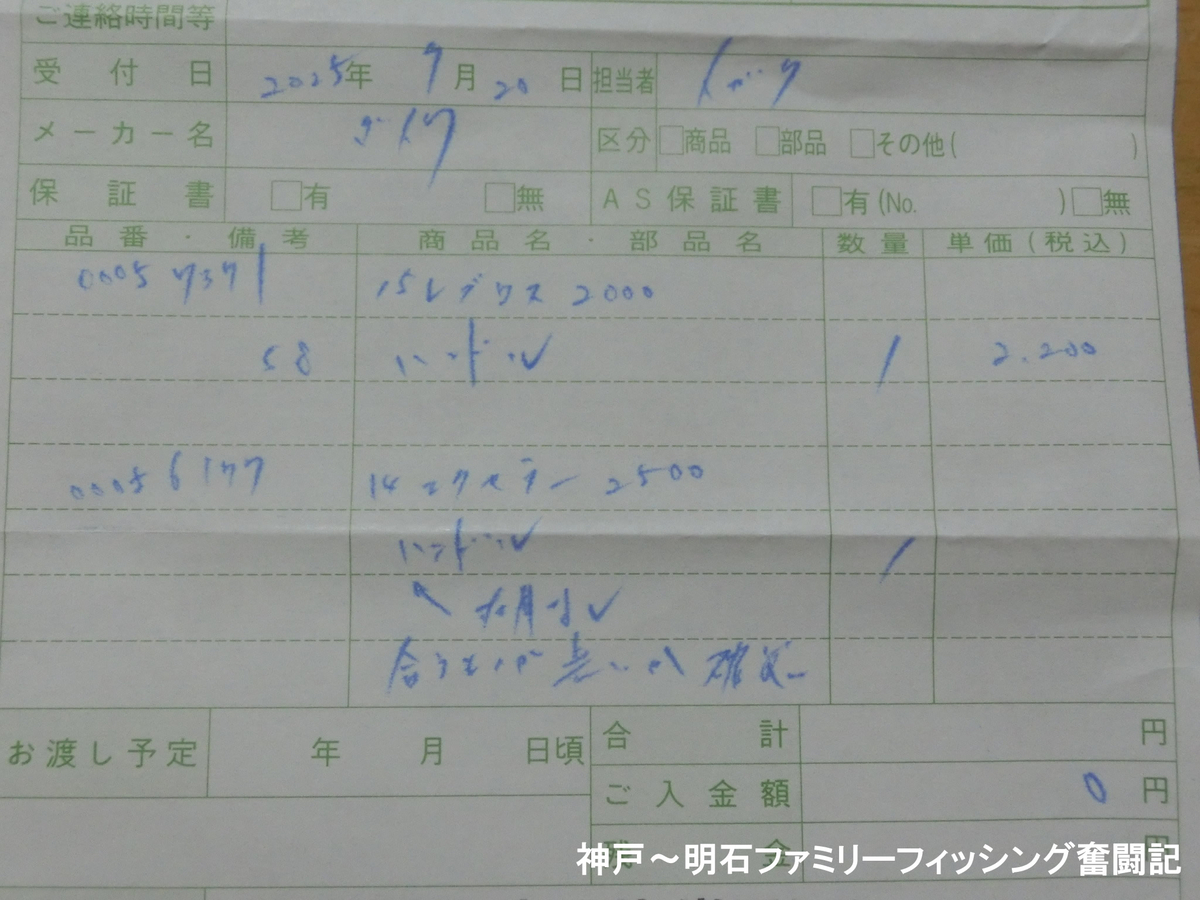 ご連絡時間等
受付日 2025年 9月 20日 担当者
メーカー名 ダイワ 区分 □商品 □部品 □その他( )
保証書 □有 □無 AS保証書 □有(No. ) □無
品番・備考 商品名・部品名 数量 単価(税込)
15レブロス 2000
58 ハンドル 1 2.200
14 エクセラー 2500
ハンドル 1
合うものが無いか 確認
お渡し予定 年 月 日頃 合計 円
ご入金額 0 円
残金 円
神戸～明石ファミリーフィッシング奮闘記